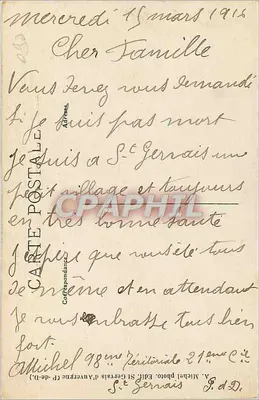 mercredi 15 mars 1916
Cher Famille
Vous devez vous demandé
si je suis pas mort
je suis a St Gervais une
petit village et toujours
en tres bonne santé
j'espère que vous ete tous
de même et en attendant
je vous embrasse tous bien
fort.
Michel 98eme territoriale 21eme Cie
St Gervais P. d D.
CARTE POSTALE
Correspondance
Adresse
A. Michel photo. Edit. St Gervais d'Auvergne (P.-de-D.)
CPAPHIL